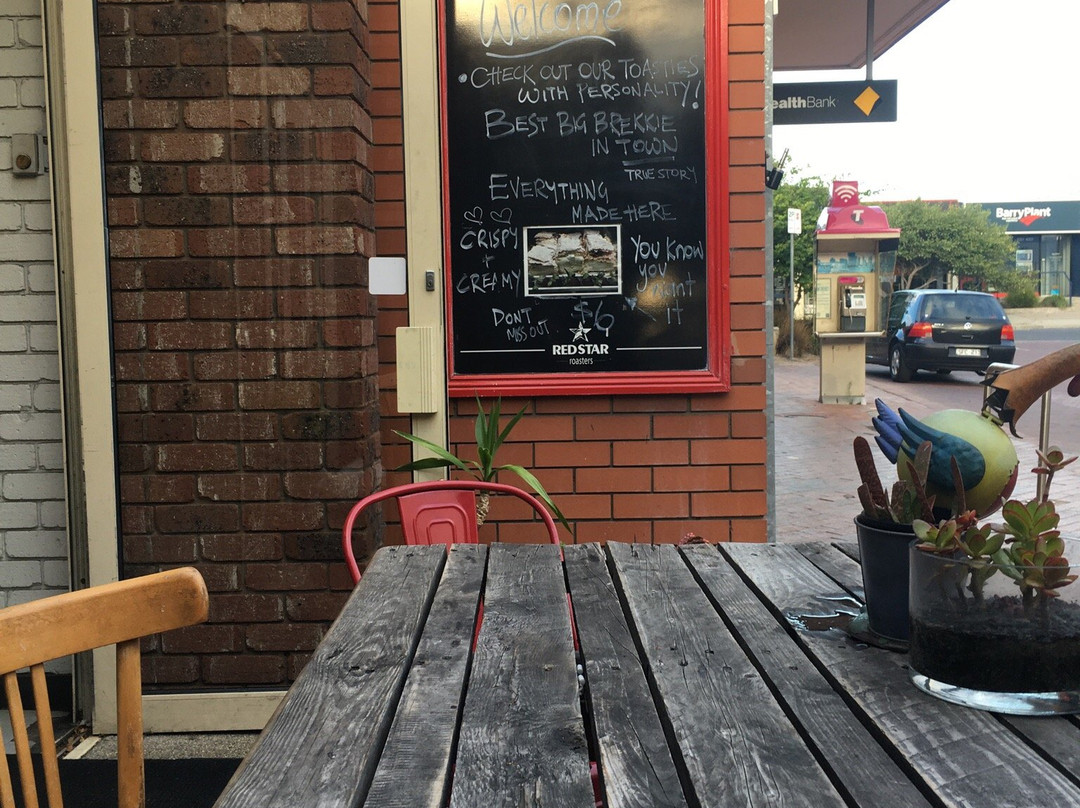 Welcome
• CHECK OUT OUR TOASTIES
WITH PERSONALITY!
BEST BIG BREKKIE
IN TOWN
TRUE STORY
EVERYTHING
MADE HERE
CRISPY
+
CREAMY
YOU KNOW
YOU
WANT
IT
DONT
MISS OUT
$6
RED STAR
roasters
ealthBank
T
BarryPlant